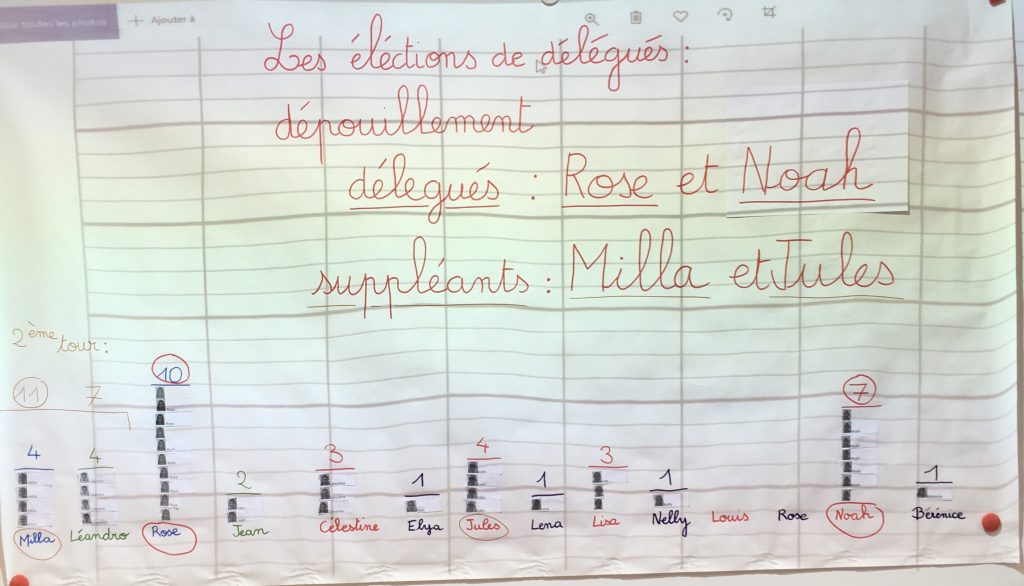 Voir toutes les photos + Ajouter à
Les éléctions de délégués :
dépouillement
délegués : Rose et Noah
suppléants : Milla et Jules
2ème tour :
11 7
10 7
4 4 2 3 1 4 1 3 1 1
Milla Léandro Rose Jean Célestine Ebya Jules Lena Lisa Nelly Louis Rose Noah Bérénice